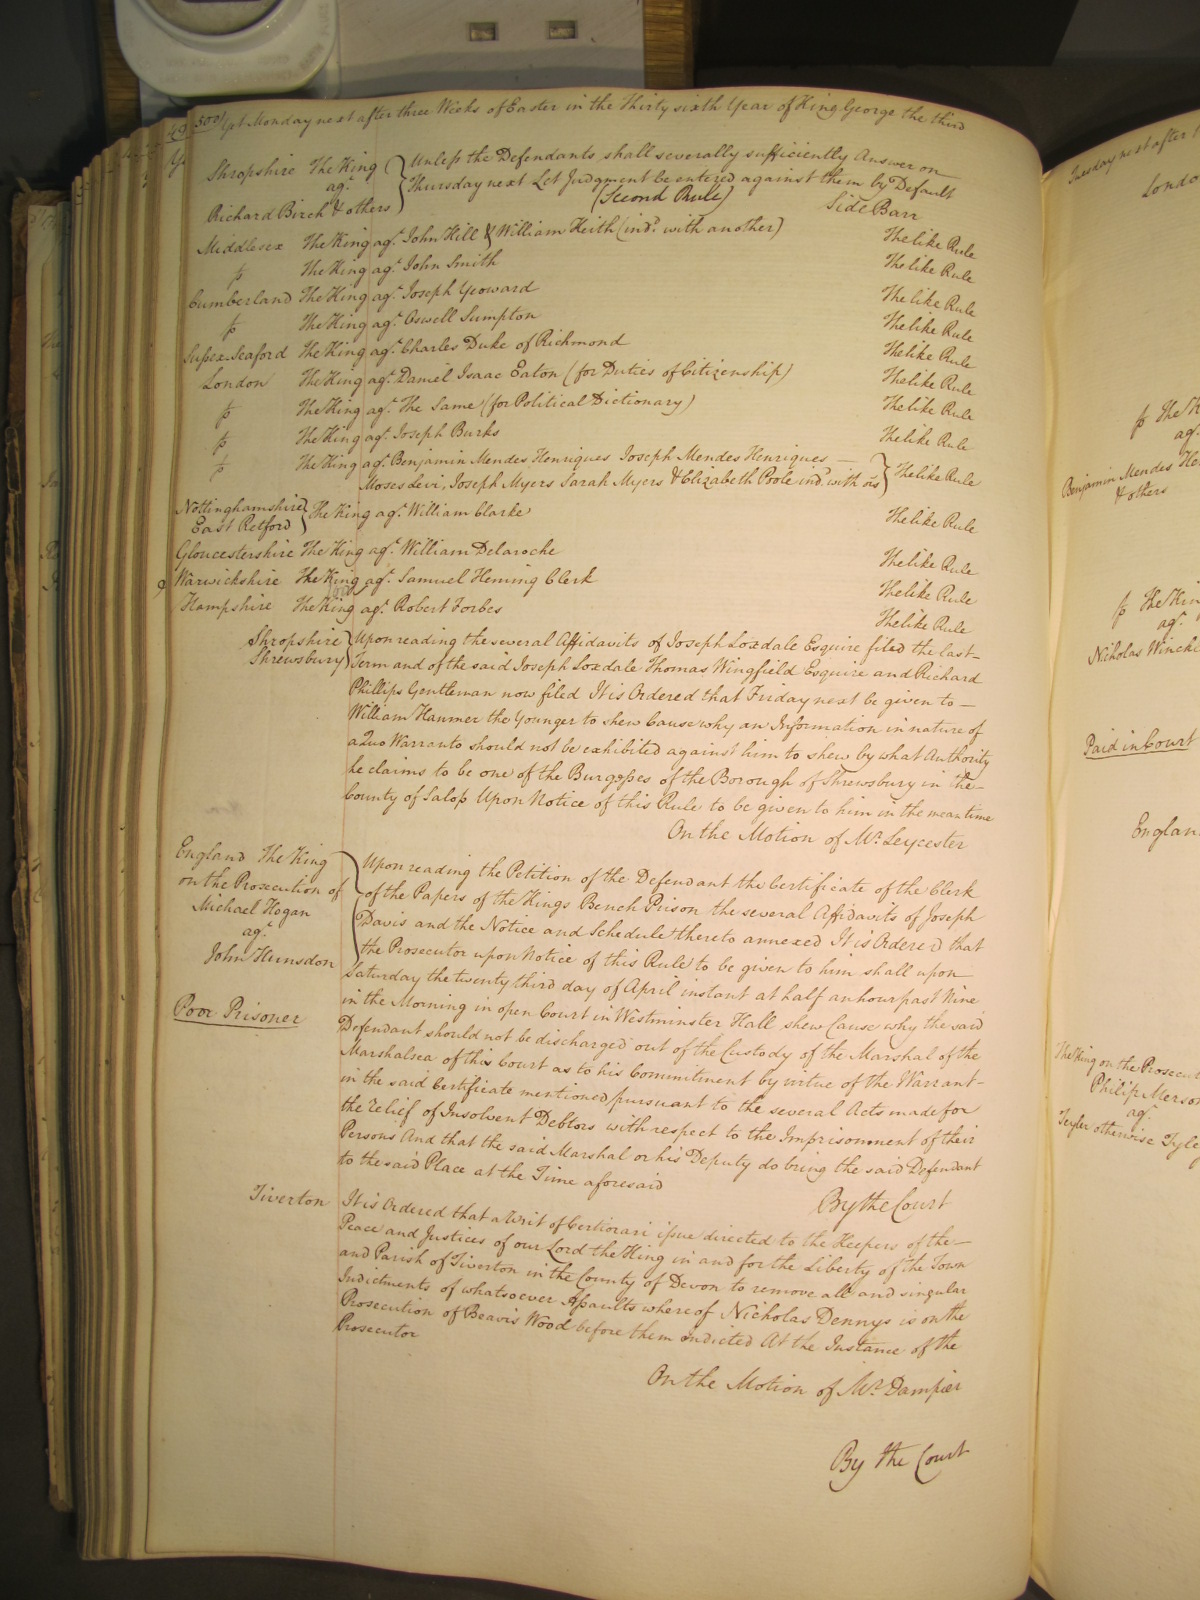 500 Yet Monday next after three Weeks of Easter in the Thirty sixth Year of King George the third
Shropshire The King
agt
Richard Birch & others
Unless the Defendants shall severally sufficiently Answer on
Thursday next Let Judgment be entered against them by Default
(Second Rule) Side Barr
Middlesex The King agt. John Hill & William Keith (indd. with another) The like Rule
p The King agt. John Smith The like Rule
Cumberland The King agt. Joseph Yeoward The like Rule
p The King agt. Oswell Sumpton The like Rule
Sussex Seaford The King agt. Charles Duke of Richmond The like Rule
London The King agt. Daniel Isaac Eaton (for Duties of Citizenship) The like Rule
p The King agt. The Same (for Political Dictionary) The like Rule
p The King agt. Joseph Burks The like Rule
p The King agt. Benjamin Mendes Henriques Joseph Mendes Henriques —
Moses Levi, Joseph Myers Sarah Myers & Elizabeth Poole indd. with ors The like Rule
Nottinghamshire
East Retford
The King agt. William Clarke The like Rule
Gloucestershire The King agt. William Delaroche The like Rule
Warwickshire The King agt. Samuel Heming Clerk The like Rule
Hampshire The King agt. Robert Forbes The like Rule
Shropshire
Shrewsbury
Upon reading the several Affidavits of Joseph Loxdale Esquire filed the last
Term and of the said Joseph Loxdale Thomas Wingfield Esquire and Richard
Phillips Gentleman now filed It is Ordered that Friday next be given to —
William Hanmer the Younger to shew Cause why an Information in nature of
a Quo Warranto should not be exhibited against him to shew by what Authority
he claims to be one of the Burgesses of the Borough of Shrewsbury in the
County of Salop Upon Notice of this Rule to be given to him in the mean time
On the Motion of Mr. Leycester
England The King
on the Prosecution of
Michael Hogan
agt.
John Hunsdon
Poor Prisoner
Upon reading the Petition of the Defendant the Certificate of the Clerk
of the Papers of the Kings Bench Prison the several Affidavits of Joseph
Davis and the Notice and Schedule thereto annexed It is Ordered that
the Prosecutor upon Notice of this Rule to be given to him shall upon
Saturday the twenty third day of April instant at half an hour past Nine
in the Morning in open Court in Westminster Hall shew Cause why the said
Defendant should not be discharged out of the Custody of the Marshal of the
Marshalsea of this Court as to his Commitment by virtue of the Warrant
in the said Certificate mentioned pursuant to the several Acts made for
the relief of Insolvent Debtors with respect to the Imprisonment of their
Persons And that the said Marshal or his Deputy do bring the said Defendant
to the said Place at the Time aforesaid
By the Court
Tiverton
It is Ordered that a Writ of Certiorari issue directed to the Keepers of the
Peace and Justices of our Lord the King in and for the Liberty of the Town
and Parish of Tiverton in the County of Devon to remove all and singular
Indictments of whatsoever Assaults whereof Nicholas Dennys is on the
Prosecution of Beavis Wood before them indicted At the Instance of the
Prosecutor
On the Motion of Mr. Dampier
By the Court
Tuesday next after
Londo
p The K
agt.
Benjamin Mendes He
& others
p The Kin
agt.
Nicholas Winck
Paid in Court
Englan
The King on the Prosecut
Philip Merson
agt.
otherwise Tyle